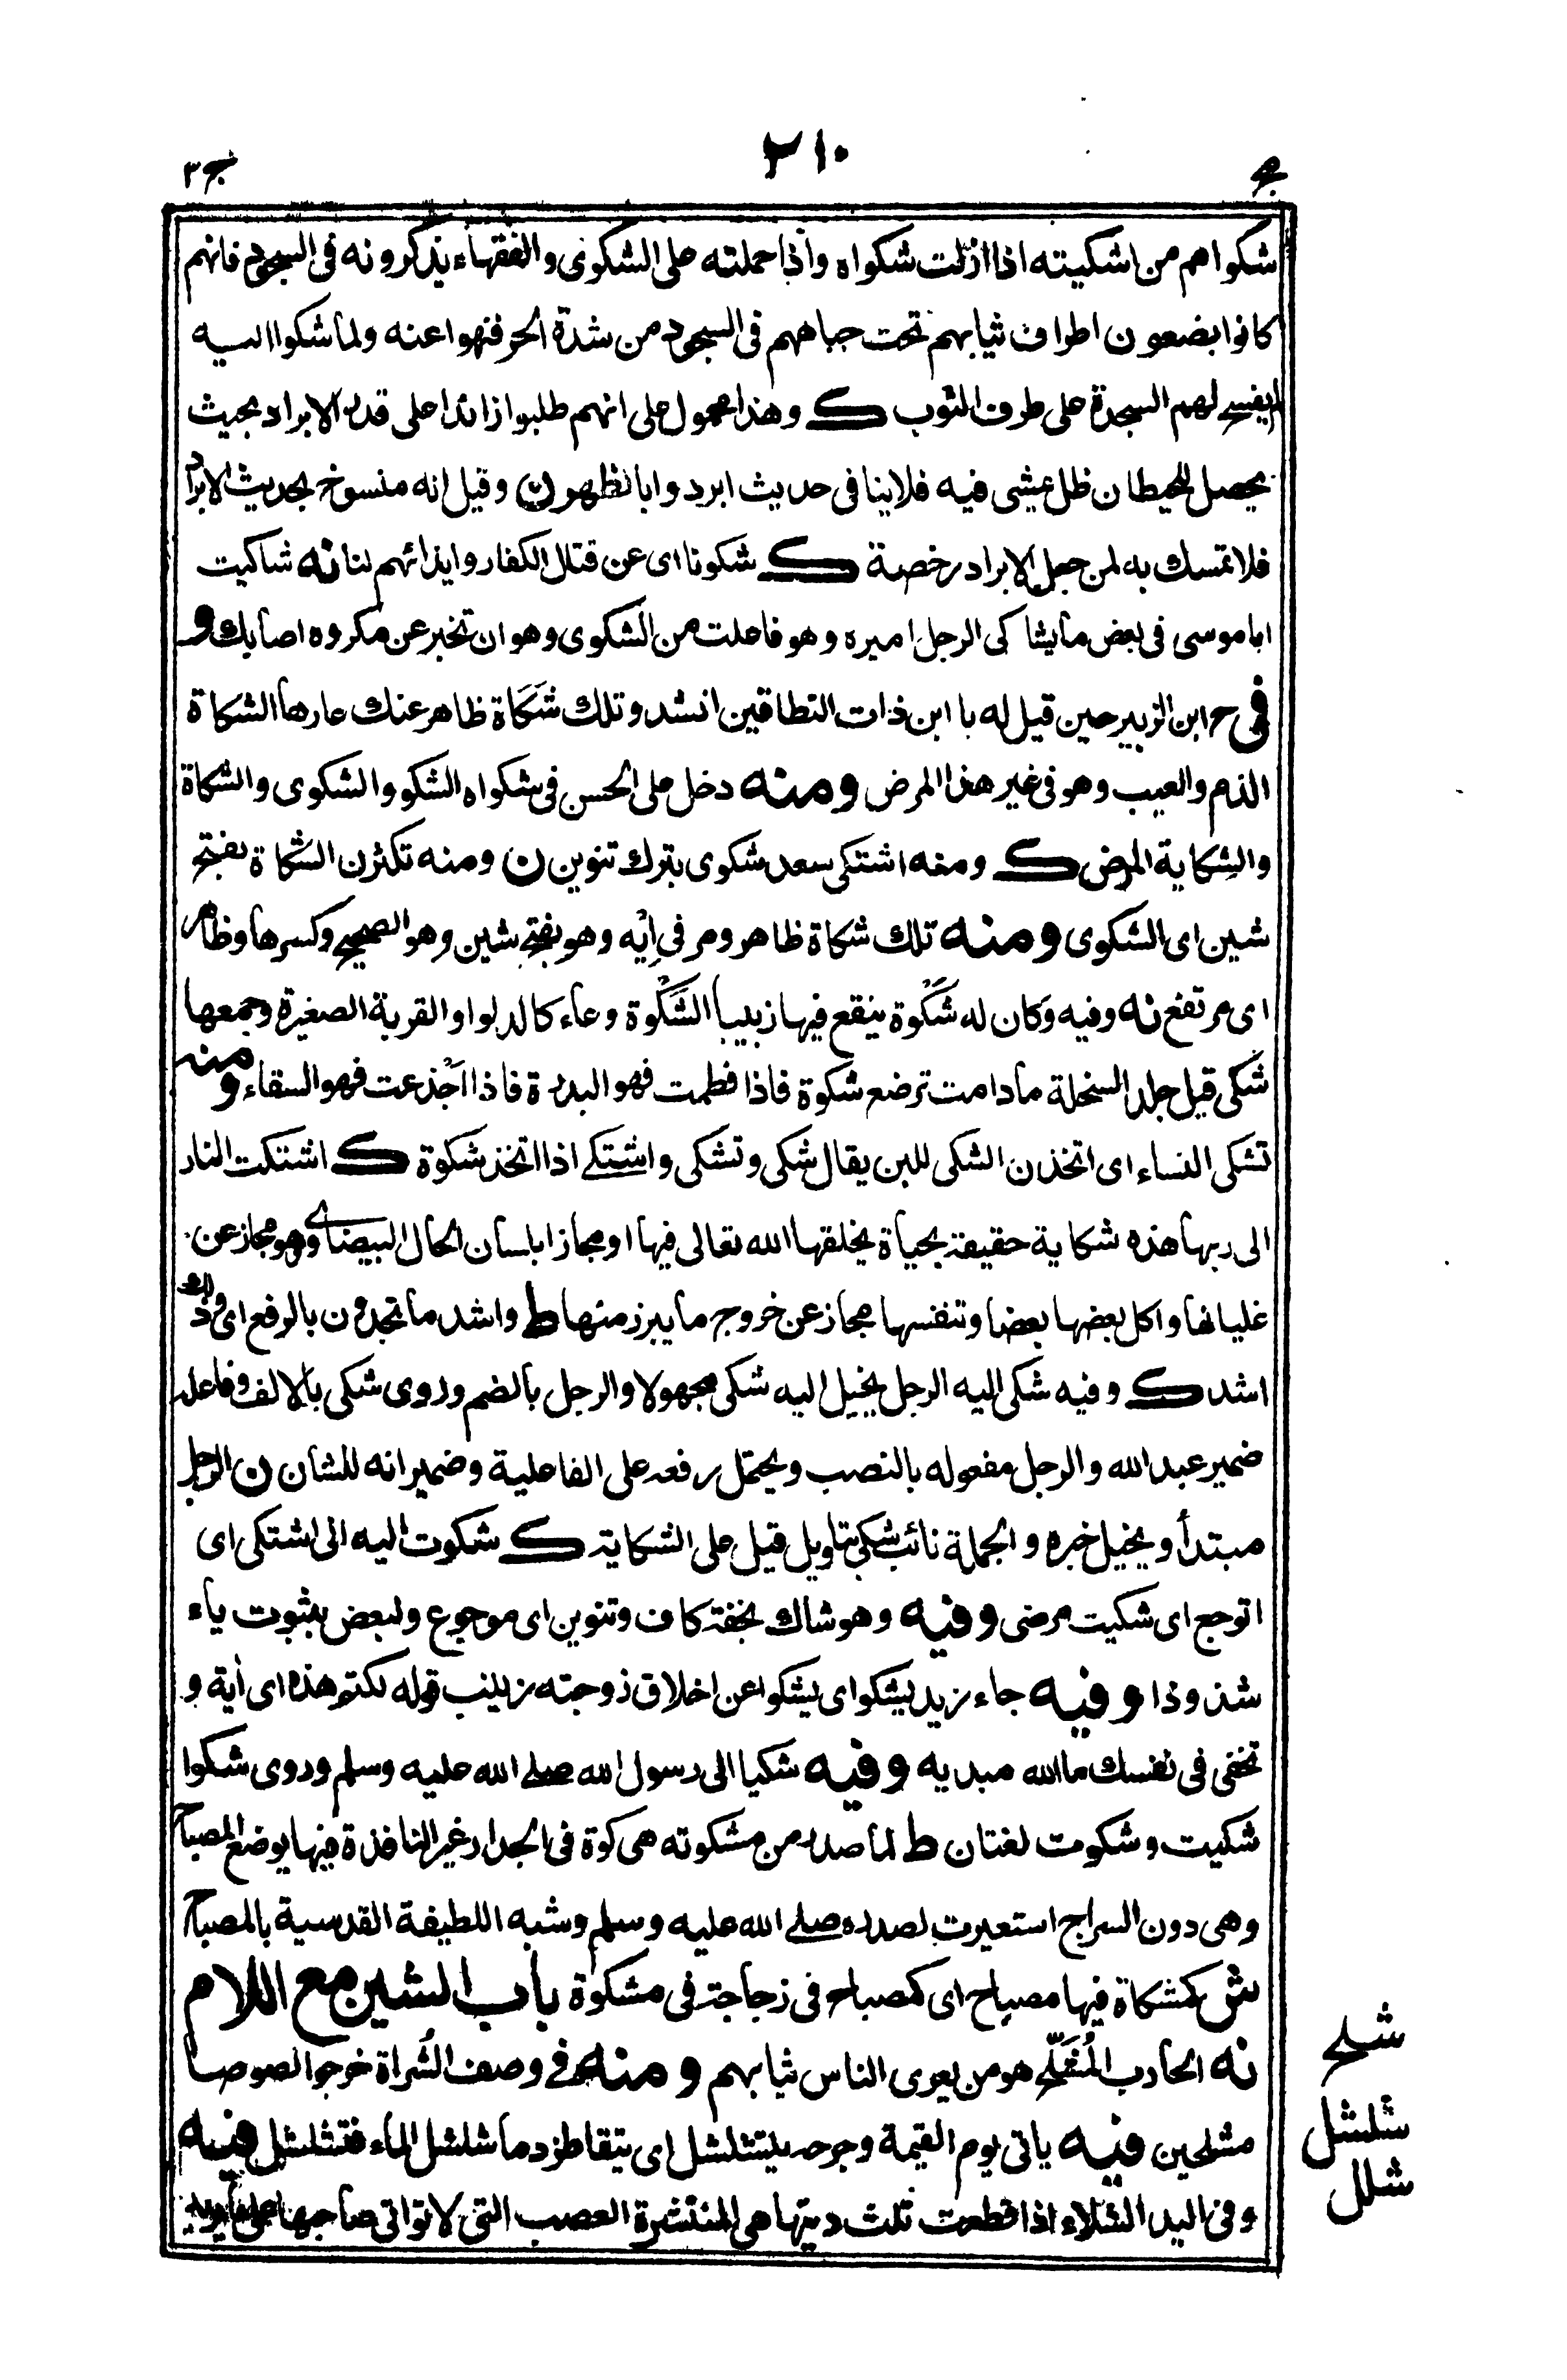 ٢١٠
ج ٣
شكواهم من اشكيته اذا ازلت شكواه واذا حملته على الشكوى والفقهاء يذكرونه فى السجود فانهم
كانوا يضعون اطراف ثيابهم تحت جباههم فى السجود من شدة الحر فنهوا عنه ولما شكوا اليه
لم يفسح لهم السجدة على طرف الثوب ك وهذا محمول على انهم طلبوا زائدا على قدر الابراد بحيث
يحصل للحيطان ظل يمشى فيه فلا ينافى حديث ابردوا بالظهر ن وقيل انه منسوخ بحديث الابراد
فلا تمسك به لمن جعل الابراد رخصة ك شكونا اى عن قتل الكفار وايذائهم لنا نه شاكيت
ابا موسى فى بعض ما يشاكى الرجل اميره وهو فاعلت من الشكوى وهو ان تخبر عن مكروه اصابك و
فى ح ابن الزبير حين قيل له يا ابن ذات النطاقين انشد وتلك شَكَاة ظاهر عنك عارها الشكاة
الذم والعيب وهو فى غير هذا المرض ومنه دخل على الحسن فى شكواه الشكو والشكوى والشكاة
والشِكاية المرض ك ومنه اشتكى سعد شكوى بترك تنوين ن ومنه تكثرن الشَكاة بفتح
شين اى الشكوى ومنه تلك شكاة ظاهر ومر فى اِيْه وهو بفتح شين وهو الصحيح وكسرها وظاهر
اى مرتفع نه وفيه وكان له شَكْوة ينقع فيها زبيبا الشَكْوة وعاء كالدلو او القربة الصغيرة وجمعها
شُكى قيل جلد السخلة ما دامت ترضع شكوة فاذا فطمت فهو البدرة فاذا اَجْذعت فهو السقاء ومنه
تشكى النساء اى اتخذن الشكى للبن يقال شكى وتشكى واشتكى اذا اتخذ شكوة ك اشتكت النار
الى ربها هذه شكاية حقيقة بحياة يخلقها الله تعالى فيها او مجازا بلسان الحال البيضاوى وهو مجاز عن
غليانها واكل بعضها بعضا وتنفسها مجاز عن خروج ما يبرز منها ط واشد ما تجدون بالرفع اى وذلك
اشد ك وفيه شكى اليه الرجل يخيل اليه شكى مجهولا والرجل بالضم وروى شكى بالالف وفاعله
ضمير عبد الله والرجل مفعوله بالنصب ويحتمل رفعه على الفاعلية وضمير انه للشان ن الرجل
مبتدأ ويخيل خبره والجملة نائب شكى بتاويل قيل على الشكاية ك شكوت اليه انى اشتكى اى
اتوجع اى شكيت مرضى وفيه وهو شاك بخفة كاف وتنوين اى موجوع ولبعض بثبوت ياء
شذوذا وفيه جاء زيد يشكو اى يشكوا عن اخلاق زوجته زينب قوله لكتم هذه اى أية و
تخفى فى نفسك ما الله مبديه وفيه شكيا الى رسول الله صلى الله عليه وسلم وروى شكوا
شكيت وشكوت لغتان ط لما صدر من مشكوته هى كوة فى الجدار غير النافذة فيها يوضع المصباح
وهى دون السراج استعيرت لصدره صلى الله عليه وسلم وشبه اللطيفة القدسية بالمصباح
ش كمشكاة فيها مصباح اى كمصباح فى زجاجة فى مشكوة باب الشين مع اللام
نه الحارب المُشَلّح هو من يعرى الناس ثيابهم ومنه فى وصف الشُراة خرجوا لصوصا
مشلحين وفيه ياتى يوم القيمة وجرحه يتشلشل اى يتقاطر دما شلشل الماء فتشلشل وفيه
وفى اليد الشلاء اذا قطعت ثلث ديتها هى المنتشرة العصب التى لا تواتى صاحبها على
شلح
شلشل
شلل